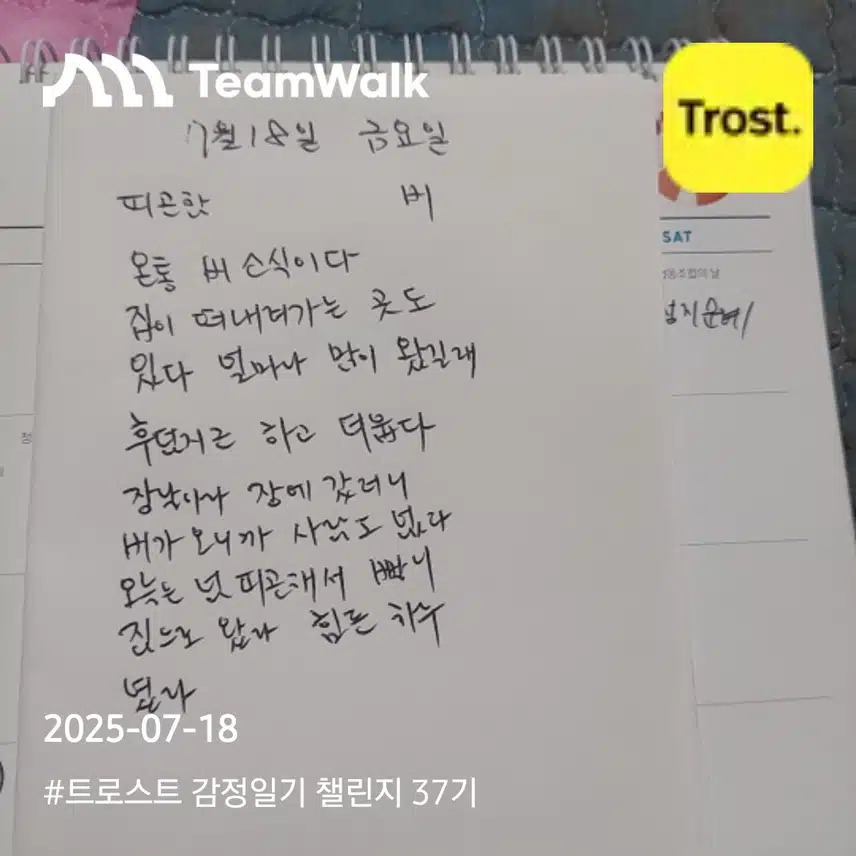 TeamWalk
Trost.
7월 18일 금요일
피곤핫 비
SAT
온통 비 소식이다
집이 떠내려가는 곳도
있다 얼마나 많이 왔길래
후덥지근 하고 더웁다
장날이나 장에 갔더니
비가 오니까 사람도 없다
오늘은 넘 피곤해서 빠니
집으로 왔다 힘든 하누
였다
2025-07-18
#트로스트 감정일기 챌린지 37기